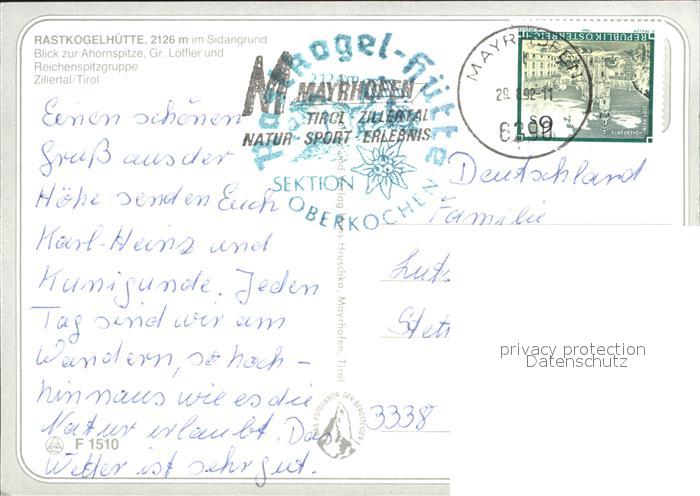 RASTKOGELHÜTTE, 2126 m im Sidangrund
Blick zur Ahornspitze, Gr. Löffler und
Reichenspitzgruppe
Zillertal/Tirol
Einen schönen
Gruß aus der
Höhe senden Euch
Karl-Heinz und
Kunigunde. Jeden
Tag sind wir am
Wandern, so hoch-
hinnaus wie es die
Natur erlaubt. Das
Wetter ist sehr gut.
F 1510
Rastkogel-Hütte
2124 m
SEKTION OBERKOCHEN
M MAYRHOFEN
TIROL - ZILLERTAL
NATUR - SPORT - ERLEBNIS
MAYRHOFEN
29. 92-11
6290
REPUBLIK ÖSTERREICH
Hruschka, Mayrhofen, Tirol
DAS FOTOLABOR DER BERGSTEIGER
Deutschland
Familie
3338
privacy protection
Datenschutz